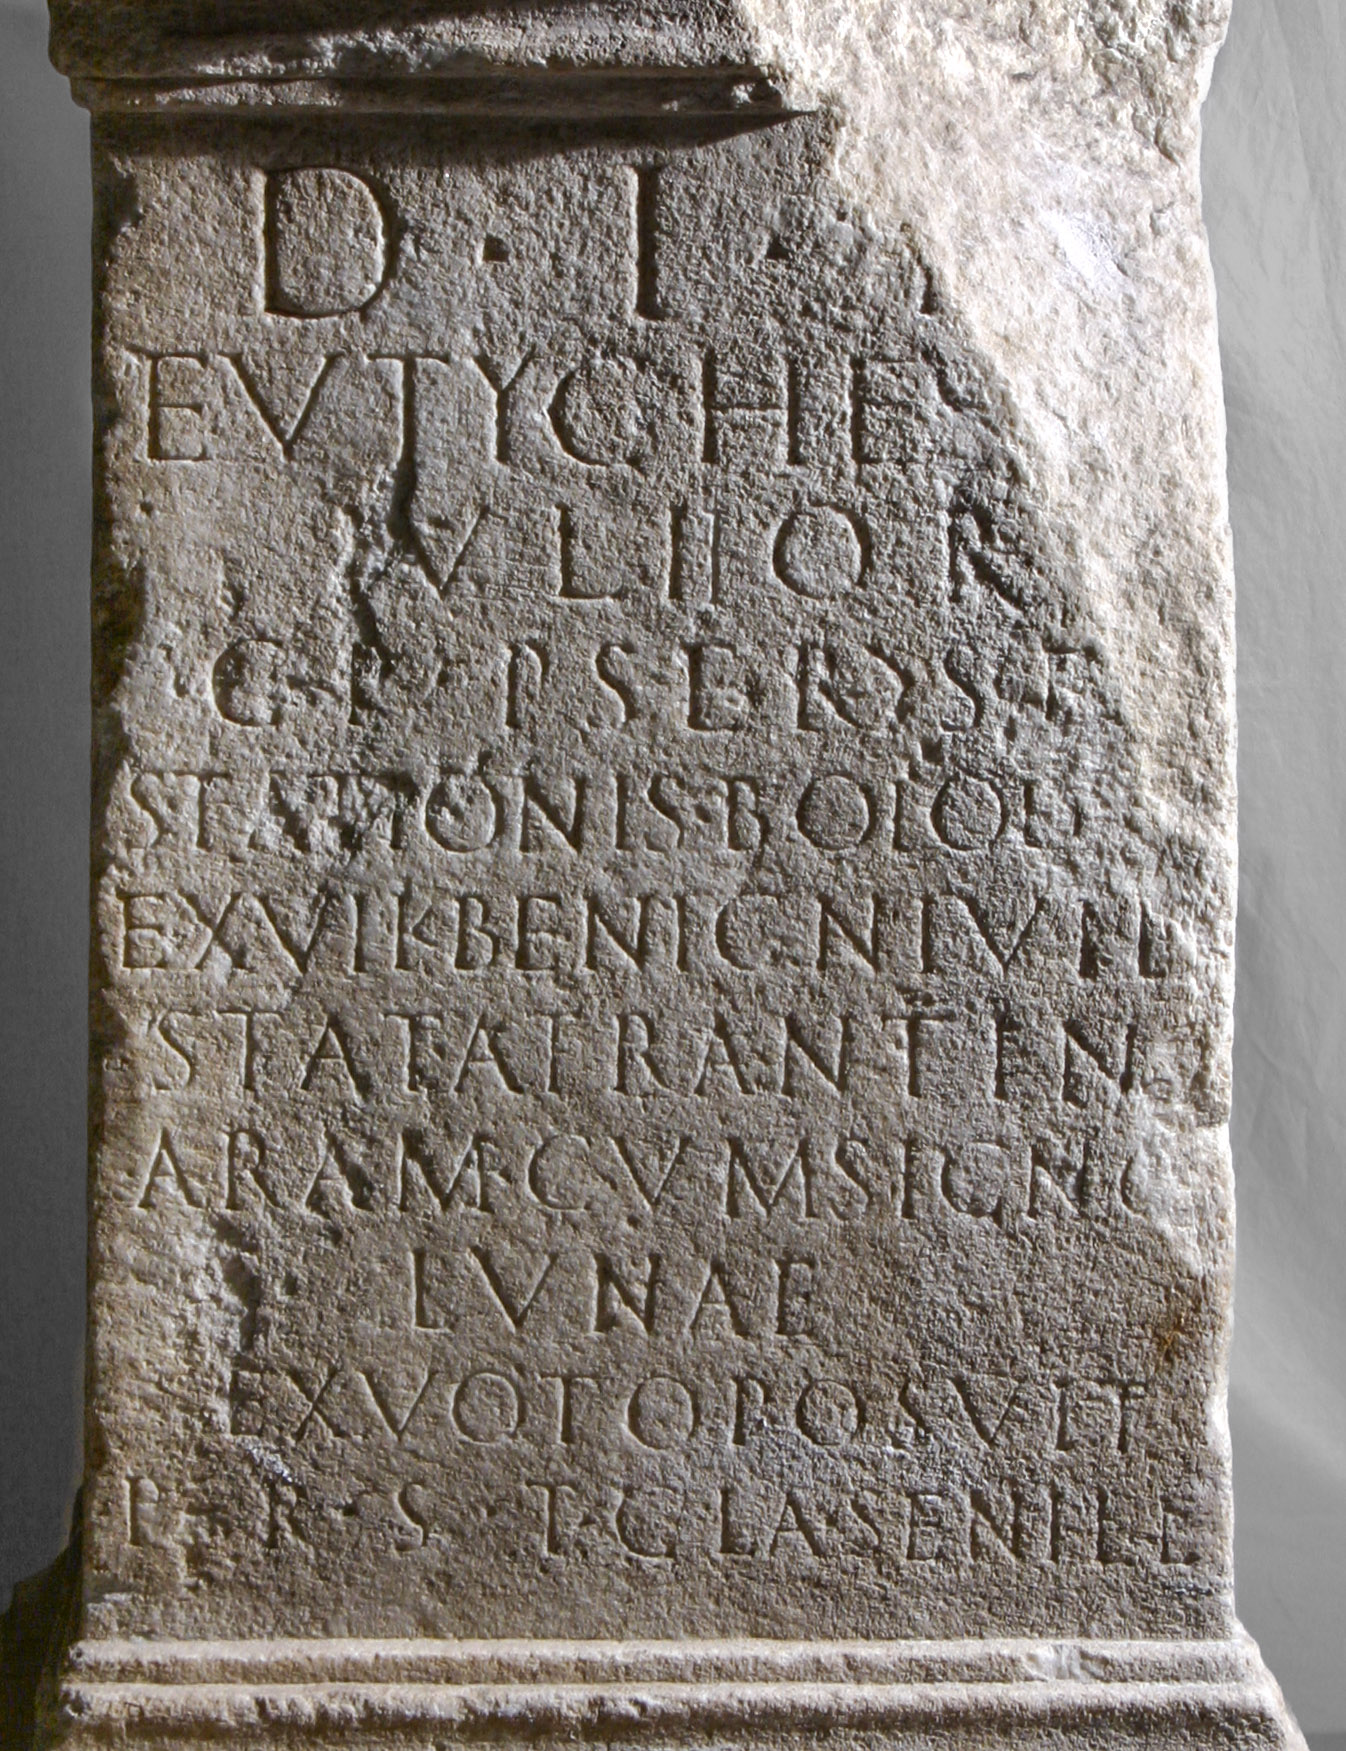 D · I ·
EVTYCHES
IVLI IOR
C · P · P SER SE
STATIONIS BOIOD
EX VIK BENIGNI VIL
STAT ATRANTIN
ARAM CVM SIGNO
LVNAE
EX VOTO POSVIT
P · R · S · T · CLA · SENILE